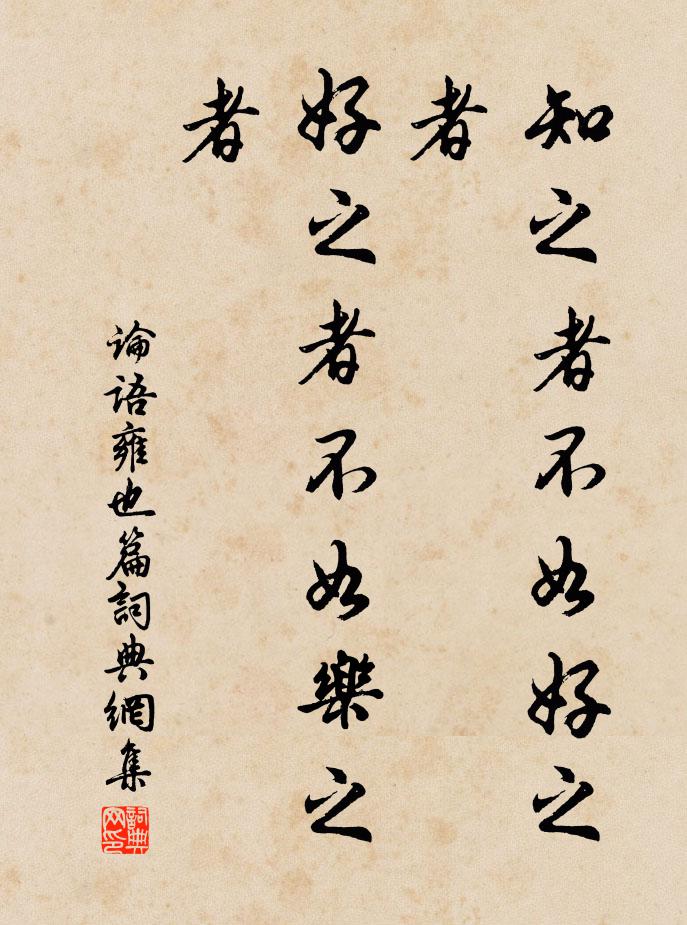 知之者不如好之
者
好之者不如樂之
者
论語雍也篇詞典網集
詞典网印